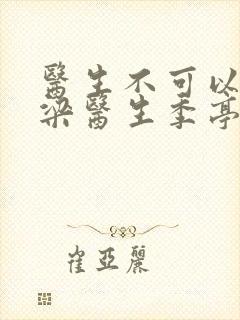 醫生不可以
梁醫生季亭
崔亞麗